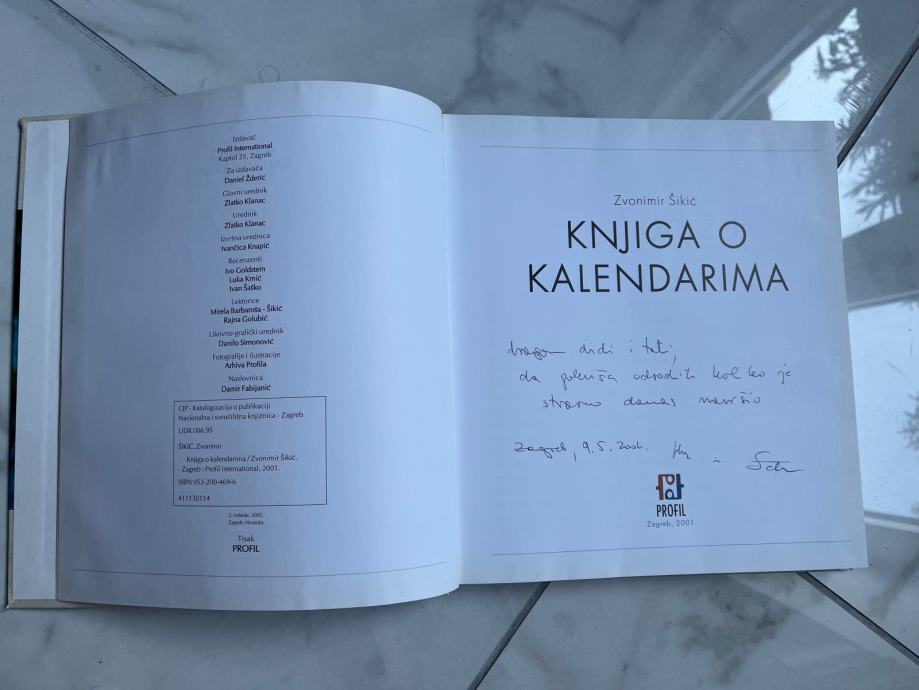 Izdavač
Profil International
Kaptol 25, Zagreb
Za izdavača
Daniel Žderić
Glavni urednik
Zlatko Klanac
Urednik
Zlatko Klanac
Izvršna urednica
Ivančica Knapić
Recenzenti
Ivo Goldstein
Luka Krnić
Ivan Šaško
Lektorice
Mirela Barbaroša - Šikić
Rajna Golubić
Likovno-grafički urednik
Danilo Simonović
Fotografije i ilustracije
Arhiva Profila
Naslovnica
Damir Fabijanić
CIP - Katalogizacija u publikaciji
Nacionalna i sveučilišna knjižnica - Zagreb
UDK 006.95
ŠIKIĆ, Zvonimir
Knjiga o kalendarima / Zvonimir Šikić.
- Zagreb : Profil international, 2001.
ISBN 953-200-469-6
411130114
2. izdanje, 2002.
Zagreb, Hrvatska
Tisak
PROFIL
Zvonimir Šikić
KNJIGA O
KALENDARIMA
didi i tati,
da odrediti koliko je
stvarno danas navršio
Zagreb, 9.5.
PROFIL
Zagreb, 2001.